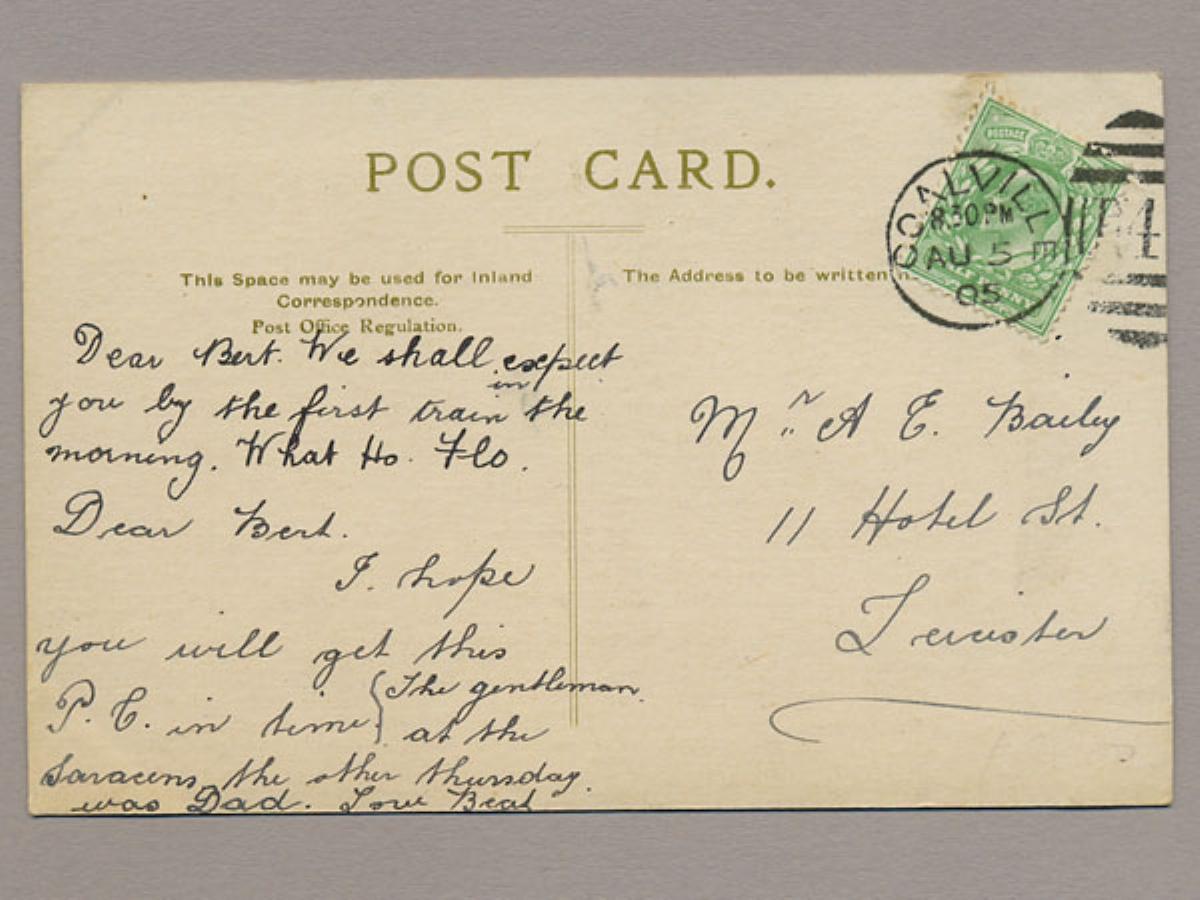 POST CARD.
This Space may be used for Inland
Correspondence.
Post Office Regulation.
The Address to be written
Dear Bert. We shall expect
you by the first train in the
morning. What Ho. Flo.
Dear Bert.
I. hope
you will get this
P. C. in time { The gentleman
at the
Saracens the other thursday.
was Dad. Love Beat
POSTAGE
COALVILLE
8.30 PM
AU 5
05
Mr. A E. Bailey
11 Hotel St.
Leicester